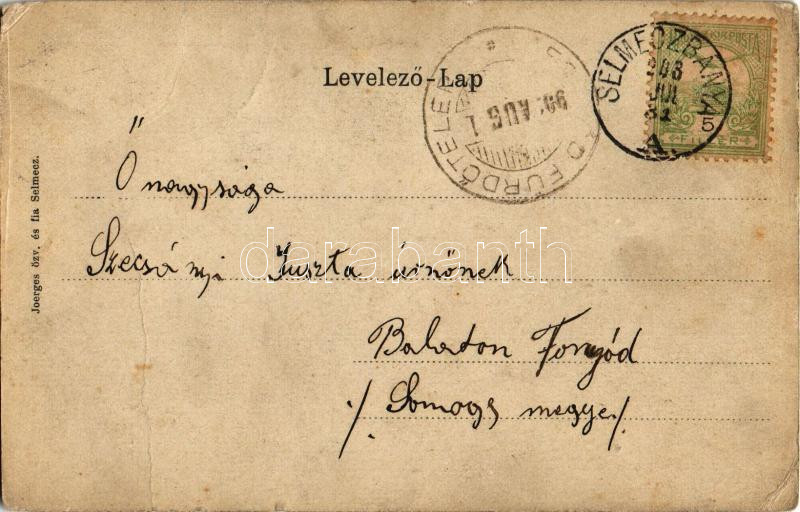 Levelező-Lap
SELMECZBÁNYA
908
JUL
31
A.
FILLÉR
5
FÜRDŐTELEP
90 AUG 1
Ő nagysága
Szecsányi Juszta úrnőnek
Balaton Fonyód
/ Somogy megye /
Joerges özv. és fia Selmecz.
darabanth